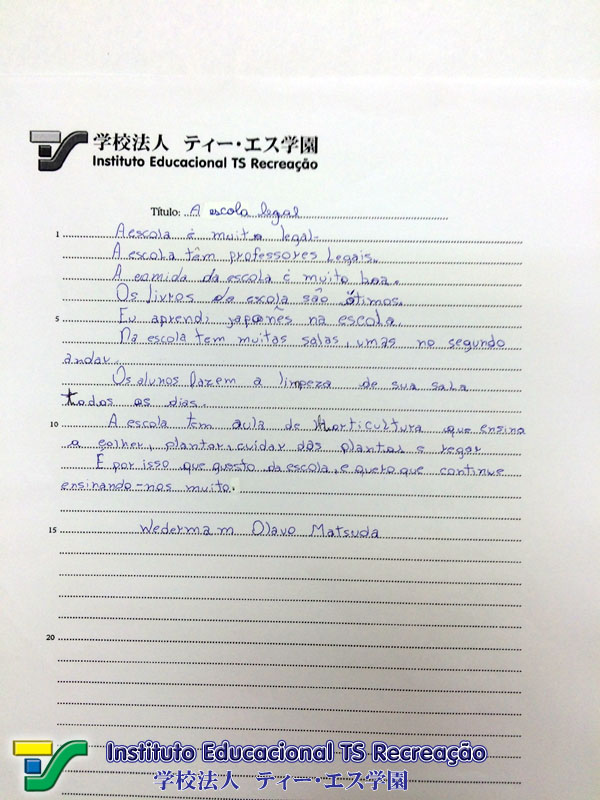 学校法人 ティー・エス学園
Instituto Educacional TS Recreação
Título: A escola legal
1 A escola é muito legal.
A escola têm professores legais.
A comida da escola é muito boa.
Os livros da escola são ótimos.
5 Eu aprendi japonês na escola.
Na escola tem muitas salas, umas no segundo
andar.
Os alunos fazem a limpeza de sua sala
todos os dias.
10 A escola tem aula de Horticultura que ensina
a colher, plantar, cuidar das plantas e regar
E por isso que gosto da escola, e quero que continue
ensinando-nos muito.
15 Wedermam Olavo Matsuda
20
Instituto Educacional TS Recreação
学校法人 ティー・エス学園